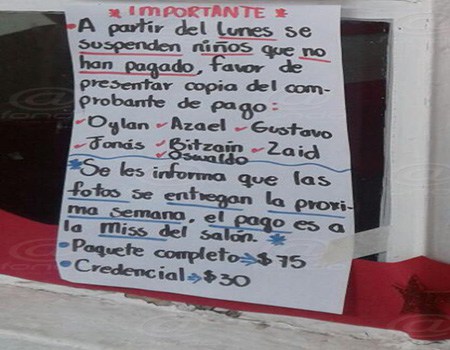 * IMPORTANTE *
• A partir del lunes se
suspenden niños que no
han pagado, favor de
presentar copia del com-
probante de pago:
✓Dylan ✓Azael ✓Gustavo
✓Jonás ✓Bitzaín ✓Zaid
✓Oswaldo
*Se les informa que las
fotos se entregan la proxi-
ma semana, el pago es a
la Miss del salón. *
• Paquete completo→$75
• Credencial→$30